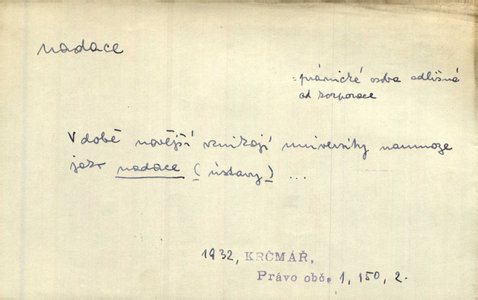 nadace
: právnické osoba odlišná
od korporace
V době novější vznikají university namnoze
jako nadace (ústavy) ...
1932, KRČMÁŘ,
Právo obč. 1, 150, 2.